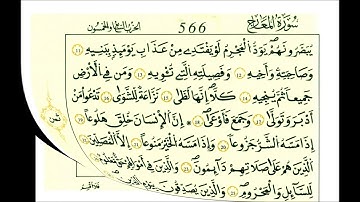 سُورَةُ الْمَعَارِجِ 566 الحزب السابع والخمسون
يُبَصَّرُونَهُمْ يَوَدُّ الْمُجْرِمُ لَوْ يَفْتَدِى مِنْ عَذَابِ يَوْمَئِذٍ بِبَنِيهِ ١١
وَصَاحِبَتِهِ وَأَخِيهِ ١٢ وَفَصِيلَتِهِ الَّتِى تُـْٔوِيهِ ١٣ وَمَن فِى الْأَرْضِ
جَمِيعًا ثُمَّ يُنجِيهِ ١٤ كَلَّا إِنَّهَا لَظَى ١٥ نَزَّاعَةٌ لِّلشَّوَى ١٦ تَدْعُوا مَنْ
أَدْبَرَ وَتَوَلَّى ١٧ وَجَمَعَ فَأَوْعَى ١٨ إِنَّ الْإِنسَانَ خُلِقَ هَلُوعًا ١٩
إِذَا مَسَّهُ الشَّرُّ جَزُوعًا ٢٠ وَإِذَا مَسَّهُ الْخَيْرُ مَنُوعًا ٢١ إِلَّا الْمُصَلِّينَ
الَّذِينَ هُمْ عَلَى صَلَاتِهِمْ دَائِمُونَ ٢٣ وَالَّذِينَ فِى أَمْوَالِهِمْ
لِّلسَّائِلِ وَالْمَحْرُومِ ٢٥ وَالَّذِينَ يُصَدِّقُونَ
ثمن